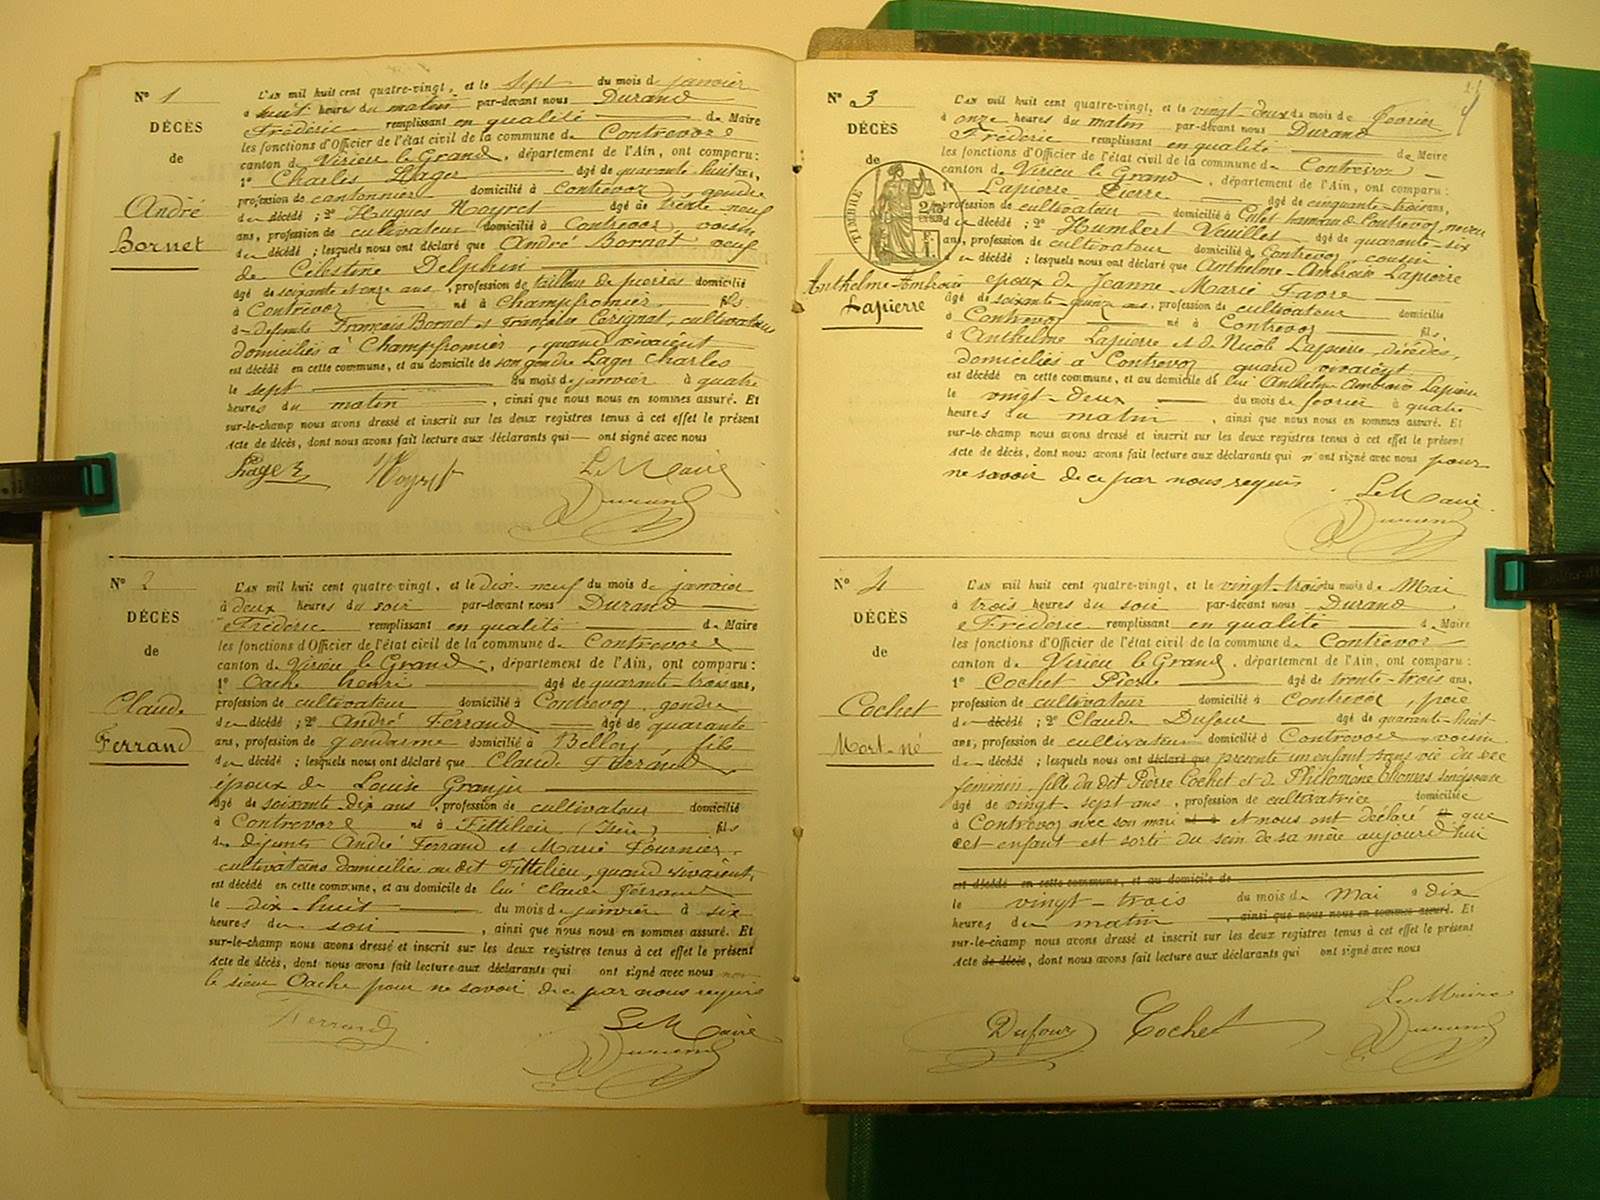 N° 1
DÉCÈS
de
André
Bornet
L'AN mil huit cent quatre-vingt, et le sept du mois de janvier
à huit heures du matin par-devant nous Durand
Frédéric remplissant en qualité de Maire
les fonctions d'Officier de l'état civil de la commune de Contrevoz
canton de Virieu le Grand, département de l'Ain, ont comparu :
1° Charles Lager âgé de quarante-huit ans,
profession de cantonnier domicilié à Contrevoz, gendre
du décédé ; 2° Hugues Moyret âgé de trente neuf
ans, profession de cultivateur domicilié à Contrevoz, voisin
du décédé ; lesquels nous ont déclaré que André Bornet veuf
de Célestine Delphin
âgé de soixante et onze ans, profession de tailleur de pierres domicilié
à Contrevoz né à Champfromier fils
de défunts François Bornet et Françoise, cultivateurs
domiciliés à Champfromier, quand vivaient
est décédé en cette commune, et au domicile de son gendre Lager Charles
le sept du mois de janvier à quatre
heures du matin, ainsi que nous nous en sommes assuré. Et
sur-le-champ nous avons dressé et inscrit sur les deux registres tenus à cet effet le présent
Acte de décès, dont nous avons fait lecture aux déclarants qui ont signé avec nous
Lager Moyret Le Maire
Durand
N° 2
DÉCÈS
de
Claude
Ferrand
L'AN mil huit cent quatre-vingt, et le dix-neuf du mois de janvier
à deux heures du soir par-devant nous Durand
Frédéric remplissant en qualité de Maire
les fonctions d'Officier de l'état civil de la commune de Contrevoz
canton de Virieu le Grand, département de l'Ain, ont comparu :
1° Oache Henri âgé de quarante-trois ans,
profession de cultivateur domicilié à Contrevoz, gendre
du décédé ; 2° André Ferrand âgé de quarante
ans, profession de gendarme domicilié à Belley, fils
du décédé ; lesquels nous ont déclaré que Claude Ferrand
époux de Louise
âgé de soixante-dix ans, profession de cultivateur domicilié
à Contrevoz né à Fittilieu (Isère) fils
de défunts André Ferrand et Marie Fournier,
cultivateurs domiciliés au dit Fittilieu, quand vivaient,
est décédé en cette commune, et au domicile de lui Claude Ferrand
le dix-huit du mois de janvier à six
heures du soir, ainsi que nous nous en sommes assuré. Et
sur-le-champ nous avons dressé et inscrit sur les deux registres tenus à cet effet le présent
Acte de décès, dont nous avons fait lecture aux déclarants qui ont signé avec nous non
le sieur Oache pour ne savoir de ce par nous requis
Ferrand Le Maire
Durand
N° 3
DÉCÈS
de
TIMBRE
Anthelme-Ambroise
Lapierre
L'AN mil huit cent quatre-vingt, et le vingt-deux du mois de février
à onze heures du matin par-devant nous Durand
Frédéric remplissant en qualité de Maire
les fonctions d'Officier de l'état civil de la commune de Contrevoz
canton de Virieu le Grand, département de l'Ain, ont comparu :
1° Lapierre Pierre âgé de cinquante-trois ans,
profession de cultivateur domicilié à hameau de Contrevoz, neveu
du décédé ; 2° Humbert Veuillet âgé de quarante-six
ans, profession de cultivateur domicilié à Contrevoz, cousin
du décédé ; lesquels nous ont déclaré que Anthelme-Ambroise Lapierre
époux de Jeanne-Marie Favre
âgé de soixante-quinze ans, profession de cultivateur domicilié
à Contrevoz né à Contrevoz fils
d'Anthelme Lapierre et de Nicod Lapierre, décédés,
domiciliés à Contrevoz quand vivaient
est décédé en cette commune, et au domicile de lui Anthelme Ambroise Lapierre
le vingt-deux du mois de février à quatre
heures du matin, ainsi que nous nous en sommes assuré. Et
sur-le-champ nous avons dressé et inscrit sur les deux registres tenus à cet effet le présent
Acte de décès, dont nous avons fait lecture aux déclarants qui n'ont signé avec nous pour
ne savoir de ce par nous requis. Le Maire
Durand
N° 4
DÉCÈS
de
Cochet
Mort-né
L'AN mil huit cent quatre-vingt, et le vingt-trois du mois de Mai
à trois heures du soir par-devant nous Durand
Frédéric remplissant en qualité de Maire
les fonctions d'Officier de l'état civil de la commune de Contrevoz
canton de Virieu le Grand, département de l'Ain, ont comparu :
1° Cochet Pierre âgé de trente-trois ans,
profession de cultivateur domicilié à Contrevoz, père
du décédé ; 2° Claude Dufour âgé de quarante-huit
ans, profession de cultivateur domicilié à Contrevoz, voisin
du décédé ; lesquels nous ont déclaré que présenté un enfant sans vie du sexe
féminin, fille du dit Pierre Cochet et de Philomène Thomas son épouse
âgé de vingt-sept ans, profession de cultivatrice domiciliée
à Contrevoz avec son mari né à et nous ont déclaré que
cet enfant est sorti du sein de sa mère aujourd'hui
est décédé en cette commune, et au domicile de
le vingt-trois du mois de Mai à dix
heures du matin, ainsi que nous nous en sommes assuré. Et
sur-le-champ nous avons dressé et inscrit sur les deux registres tenus à cet effet le présent
Acte de décès, dont nous avons fait lecture aux déclarants qui ont signé avec nous
Dufour Cochet Le Maire
Durand